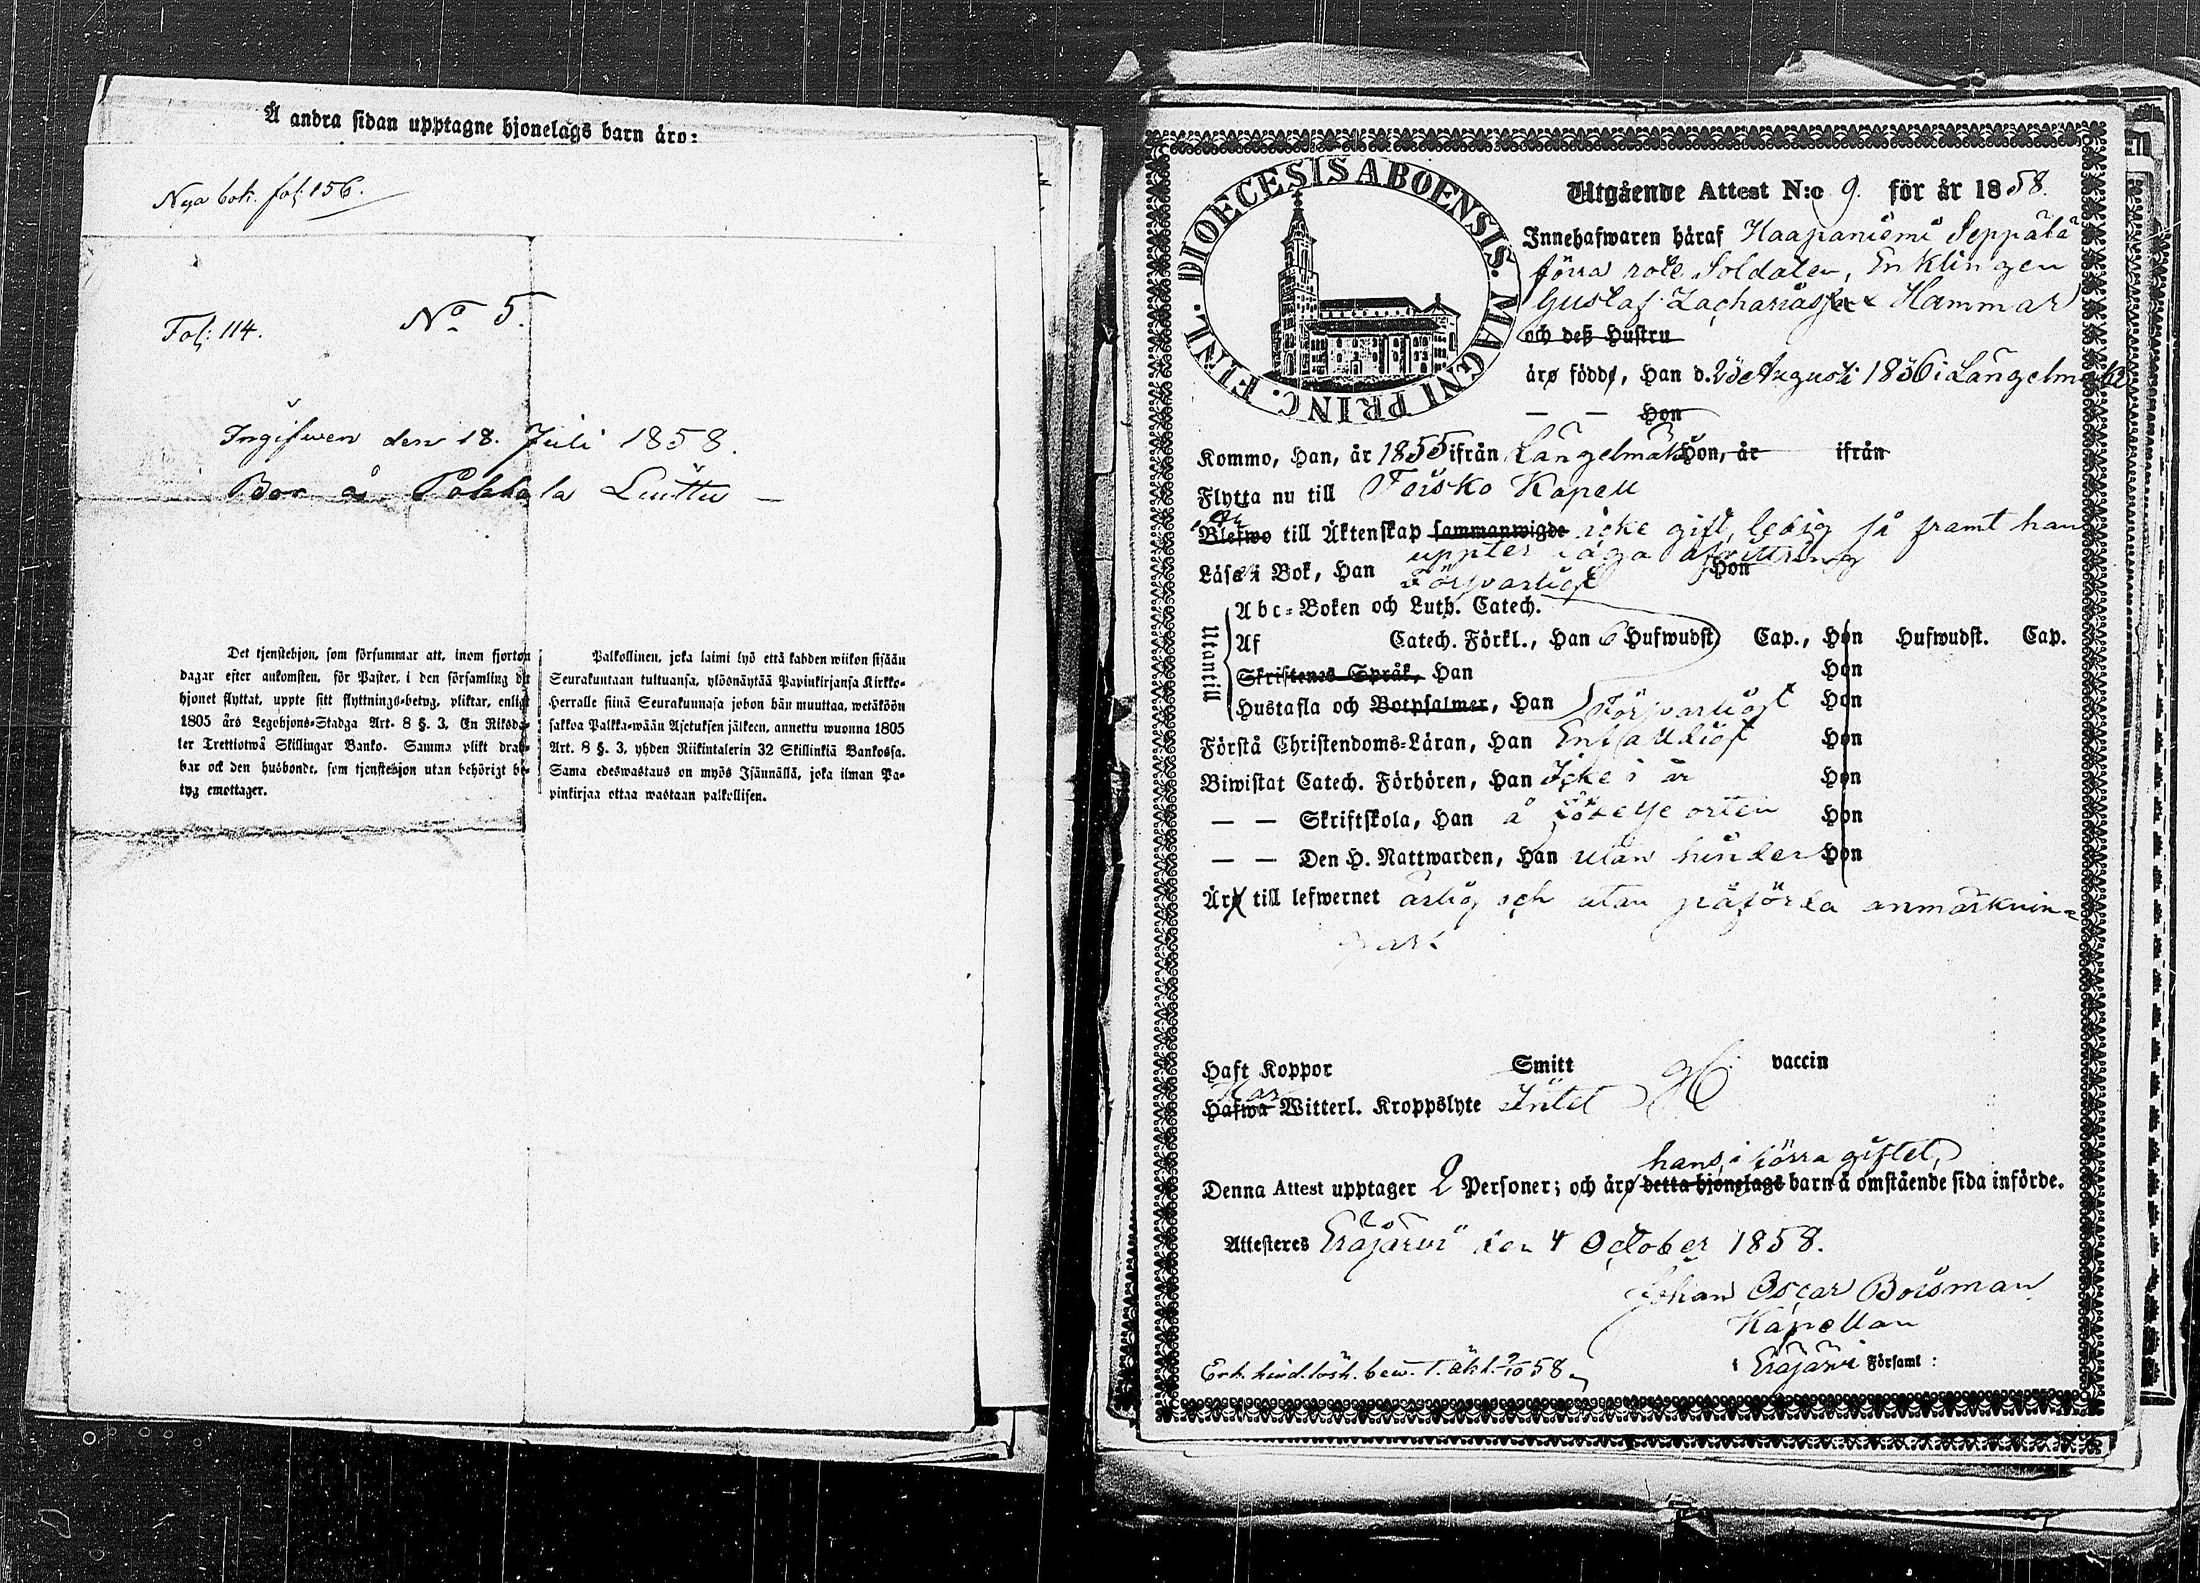 Å andra sidan upptagne hjonelags barn äro:
Nya bok. fol; 156.
Fol; 114. No 5.
Ingifwen den 18. Juli 1858.
Bor å Pohtola Luuttu
Det tjenstehjon, som försummar att, inom fjorton
dagar efter ankomsten, för Pastor, i den församling dit
hjonet flyttat, uppte sitt flyttnings-betyg, pliktar, enligt
1805 års Legohjons-Stadga Art. 8 §. 3. En Riksda-
ler Trettiotwå Skillingar Banko. Samma plikt drab-
bar ock den husbonde, som tjenstehjon utan behörigt be-
tyg emottager.
Palkollinen, joka laimi lyö että kahden wiikon sisään
Seurakuntaan tultuansa, ylösnäyttää Papinkirjansa Kirkko-
Herralle siinä Seurakunnasa johon hän muuttaa, wetäköön
sakkoa Palkka-wään Asetuksen jälkeen, annettu wuonna 1805
Art. 8 §. 3, yhden Riikintalerin 32 Skillinkiä Bankossa.
Sama edeswastaus on myös Isännällä, joka ilman Pa-
pinkirjaa ottaa wastaan palkollisen.
DIOECESIS ABOENSIS. MAGNI PRINC. FINL.
Utgående Attest N:o 9. för år 1858.
Innehafwaren häraf Haapaniemi Seppälä
förra rote Soldaten, Enklingen
Gustaf Zachariasson Hammar
och deß Hustru
äro födde, Han d. Augusti 1836 i Längelmäki
— — Hon
Kommo, Han, år 1855 ifrån Längelmäki Hon, år ifrån
Flytta nu till Teisko Kapell
Blefwo till Äktenskap sammanwigde icke gift, ledig så framt han
uppter laga afvittring
Läsa i Bok, Han Försvarligt Hon
Utantill
Abc-Boken och Luth. Catech.
Af Catech. Förkl., Han 6 Hufwudst. Cap., Hon Hufwudst. Cap.
Skriftenes Språk, Han Hon
Hustafla och Botpsalmer, Han Försvarligt Hon
Förstå Christendoms-Läran, Han Enfaldigt Hon
Biwistat Catech. Förhören, Han Icke i år Hon
— — Skriftskola, Han å födelse orten Hon
— — Den H. Nattwarden, Han utan hinder Hon
Äro till lefwernet ärlig och utan påförda anmärknin-
gar.
Haft Koppor Smitt vaccin
Har
Hafwa Witterl. Kroppslyte Intet
hans i förra giftet,
Denna Attest upptager 2 Personer; och äro detta hjonelags barn å omstående sida införde.
Attesteres Eräjärvi den 4 October 1858.
Johan Oscar Boisman
Kapellan
i Eräjärvi Församl:
Erh. hind.lösh. bew. t. äkt. 58.